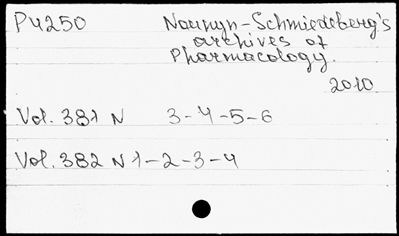 P4250 Naunyn-Schmiedeberg's
archives of
Pharmacology.
2010
Vol. 381 N 3-4-5-6
Vol. 382 N 1-2-3-4